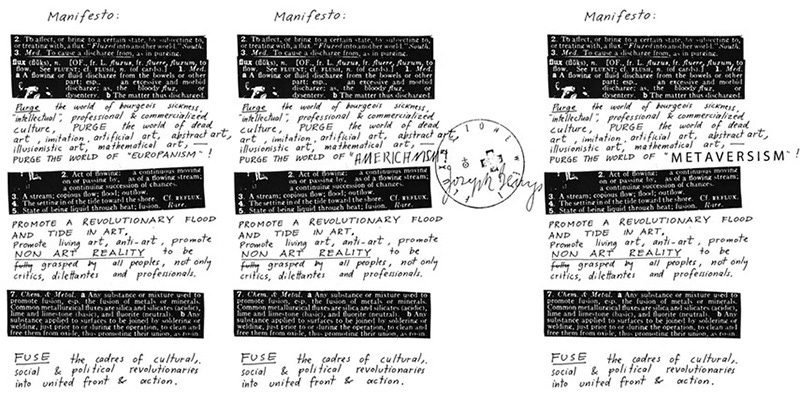 Manifesto:
2. To affect, or bring to a certain state, by subjecting to,
or treating with, a flux. "Fluxed into another world." South.
3. Med. To cause a discharge from, as in purging.
flux (flŭks), n. [OF., fr. L. fluxus, fr. fluere, fluxum, to
flow. See FLUENT; cf. FLUSH, n. (of cards).] 1. Med.
a A flowing or fluid discharge from the bowels or other
part; esp., an excessive and morbid
discharge; as, the bloody flux, or
dysentery. b The matter thus discharged.
Purge the world of bourgeois sickness,
"intellectual", professional & commercialized
culture, PURGE the world of dead
art, imitation, artificial art, abstract art,
illusionistic art, mathematical art, —
PURGE THE WORLD OF "EUROPANISM"!
2. Act of flowing: a continuous moving
on or passing by, as of a flowing stream;
a continuing succession of changes.
3. A stream; copious flow; flood; outflow.
4. The setting in of the tide toward the shore. Cf. REFLUX.
5. State of being liquid through heat; fusion. Rare.
PROMOTE A REVOLUTIONARY FLOOD
AND TIDE IN ART,
Promote living art, anti-art, promote
NON ART REALITY to be
fully grasped by all peoples, not only
critics, dilettantes and professionals.
7. Chem. & Metal. a Any substance or mixture used to
promote fusion, esp. the fusion of metals or minerals.
Common metallurgical fluxes are silica and silicates (acidic),
lime and limestone (basic), and fluorite (neutral). b Any
substance applied to surfaces to be joined by soldering or
welding, just prior to or during the operation, to clean and
free them from oxide, thus promoting their union, as rosin.
FUSE the cadres of cultural,
social & political revolutionaries
into united front & action.
Manifesto:
2. To affect, or bring to a certain state, by subjecting to,
or treating with, a flux. "Fluxed into another world." South.
3. Med. To cause a discharge from, as in purging.
flux (flŭks), n. [OF., fr. L. fluxus, fr. fluere, fluxum, to
flow. See FLUENT; cf. FLUSH, n. (of cards).] 1. Med.
a A flowing or fluid discharge from the bowels or other
part; esp., an excessive and morbid
discharge; as, the bloody flux, or
dysentery. b The matter thus discharged.
Purge the world of bourgeois sickness,
"intellectual", professional & commercialized
culture, PURGE the world of dead
art, imitation, artificial art, abstract art,
illusionistic art, mathematical art, —
PURGE THE WORLD OF "AMERICANISM"!
Joseph Beuys
2. Act of flowing: a continuous moving
on or passing by, as of a flowing stream;
a continuing succession of changes.
3. A stream; copious flow; flood; outflow.
4. The setting in of the tide toward the shore. Cf. REFLUX.
5. State of being liquid through heat; fusion. Rare.
PROMOTE A REVOLUTIONARY FLOOD
AND TIDE IN ART,
Promote living art, anti-art, promote
NON ART REALITY to be
fully grasped by all peoples, not only
critics, dilettantes and professionals.
7. Chem. & Metal. a Any substance or mixture used to
promote fusion, esp. the fusion of metals or minerals.
Common metallurgical fluxes are silica and silicates (acidic),
lime and limestone (basic), and fluorite (neutral). b Any
substance applied to surfaces to be joined by soldering or
welding, just prior to or during the operation, to clean and
free them from oxide, thus promoting their union, as rosin.
FUSE the cadres of cultural,
social & political revolutionaries
into united front & action.
Manifesto:
2. To affect, or bring to a certain state, by subjecting to,
or treating with, a flux. "Fluxed into another world." South.
3. Med. To cause a discharge from, as in purging.
flux (flŭks), n. [OF., fr. L. fluxus, fr. fluere, fluxum, to
flow. See FLUENT; cf. FLUSH, n. (of cards).] 1. Med.
a A flowing or fluid discharge from the bowels or other
part; esp., an excessive and morbid
discharge; as, the bloody flux, or
dysentery. b The matter thus discharged.
Purge the world of bourgeois sickness,
"intellectual", professional & commercialized
culture, PURGE the world of dead
art, imitation, artificial art, abstract art,
illusionistic art, mathematical art, —
PURGE THE WORLD OF "METAVERSISM"!
2. Act of flowing: a continuous moving
on or passing by, as of a flowing stream;
a continuing succession of changes.
3. A stream; copious flow; flood; outflow.
4. The setting in of the tide toward the shore. Cf. REFLUX.
5. State of being liquid through heat; fusion. Rare.
PROMOTE A REVOLUTIONARY FLOOD
AND TIDE IN ART,
Promote living art, anti-art, promote
NON ART REALITY to be
fully grasped by all peoples, not only
critics, dilettantes and professionals.
7. Chem. & Metal. a Any substance or mixture used to
promote fusion, esp. the fusion of metals or minerals.
Common metallurgical fluxes are silica and silicates (acidic),
lime and limestone (basic), and fluorite (neutral). b Any
substance applied to surfaces to be joined by soldering or
welding, just prior to or during the operation, to clean and
free them from oxide, thus promoting their union, as rosin.
FUSE the cadres of cultural,
social & political revolutionaries
into united front & action.